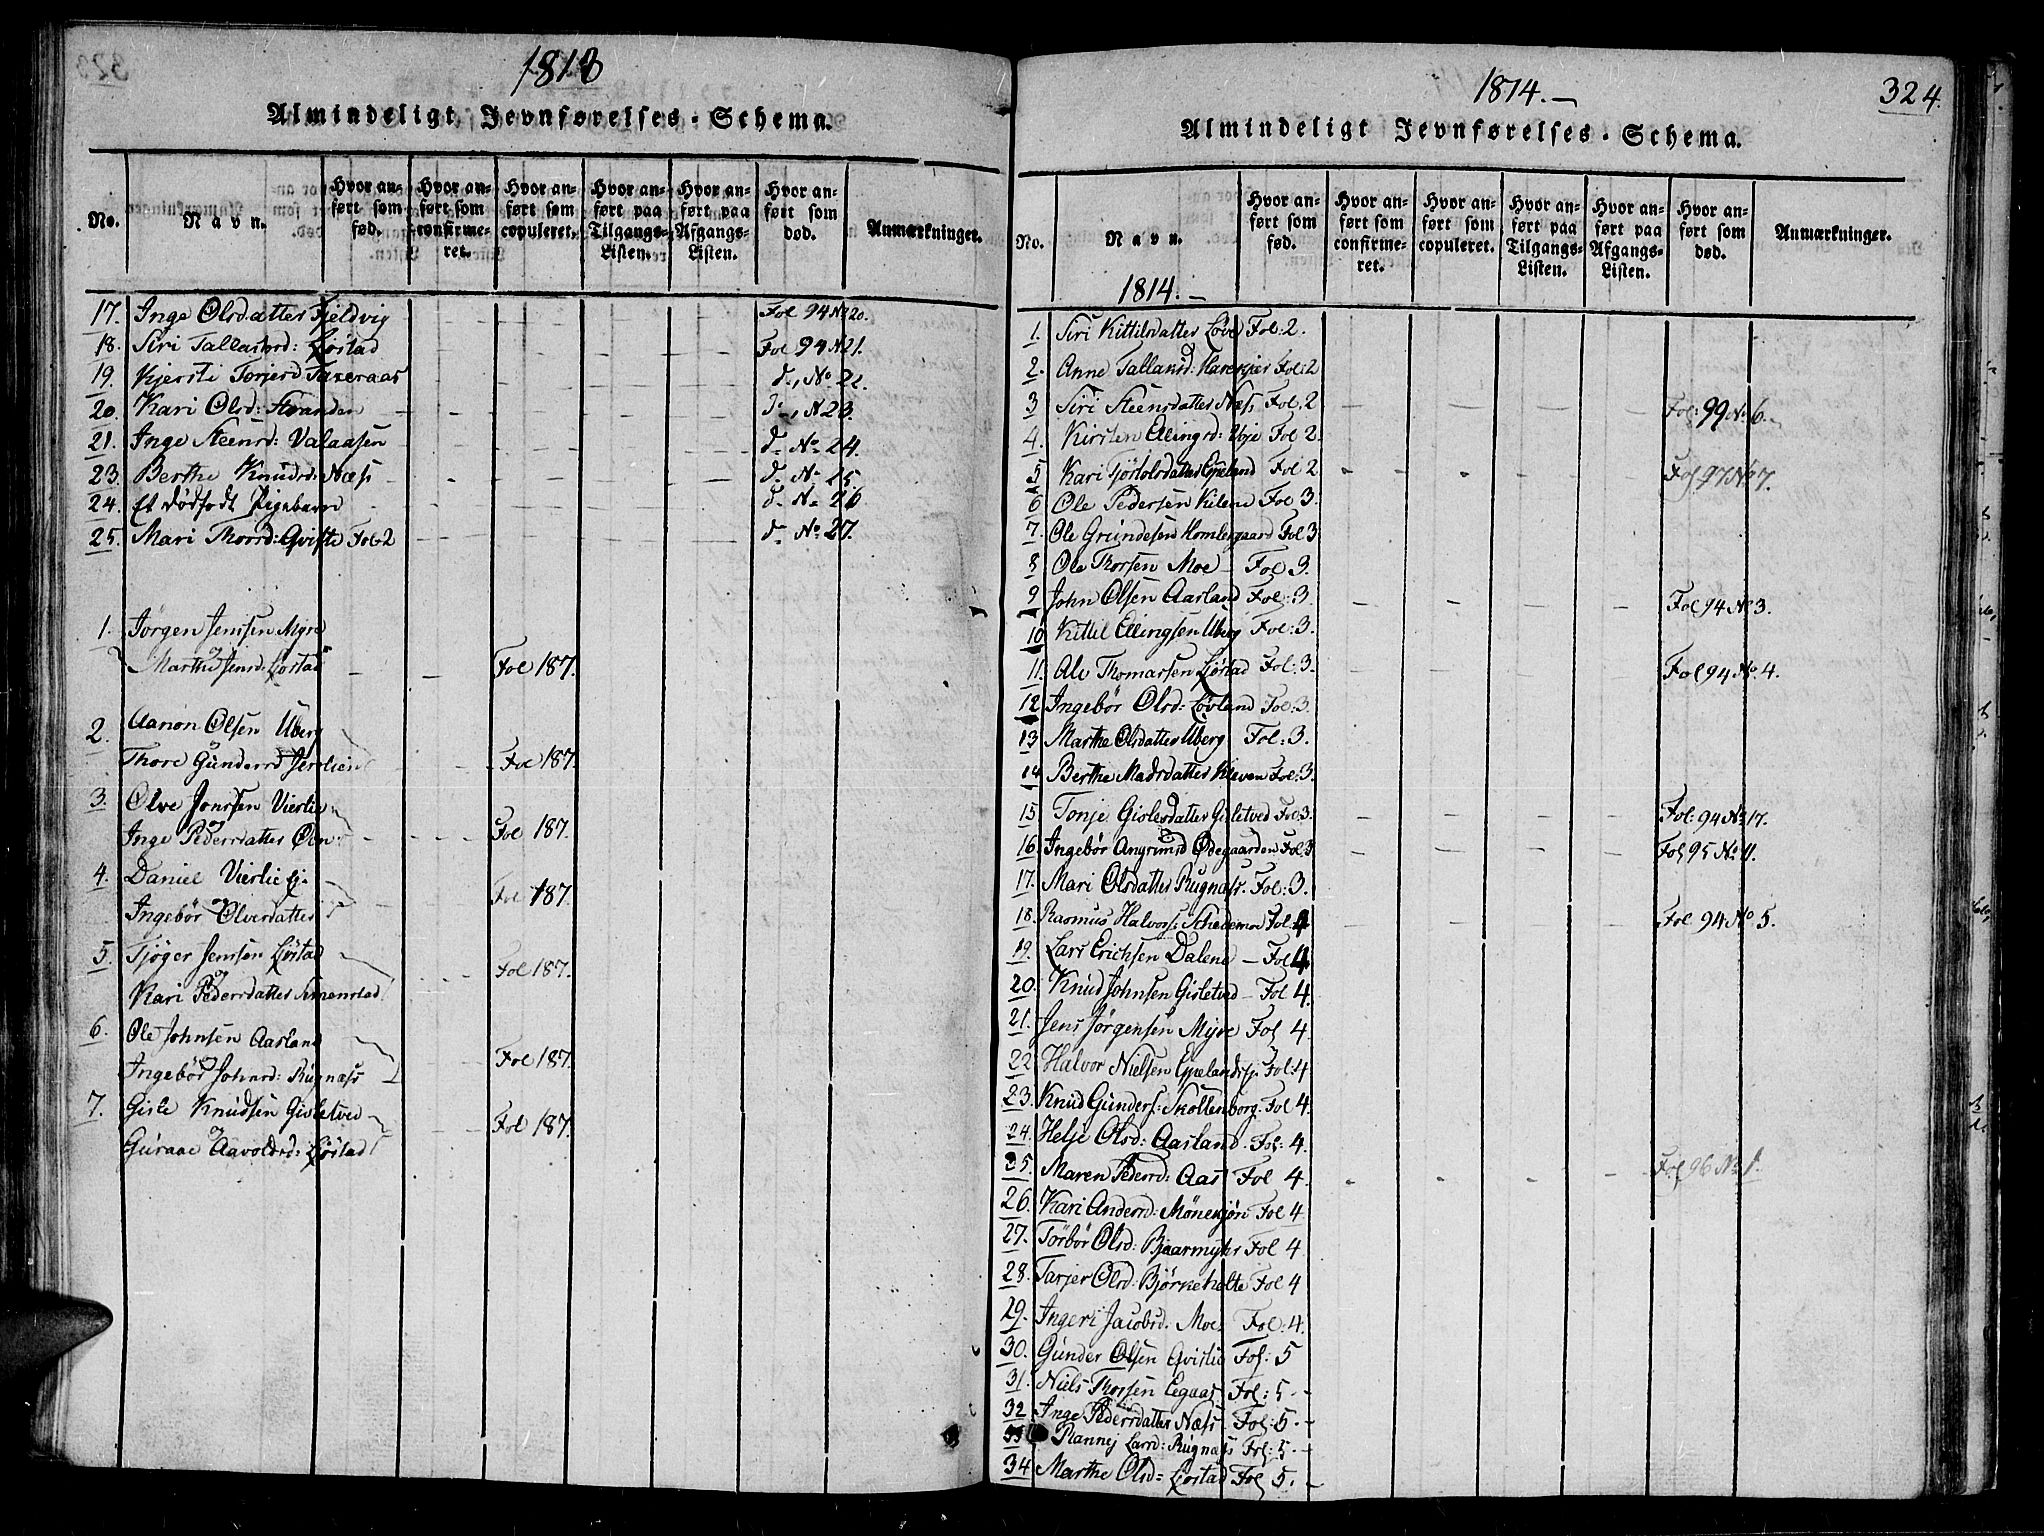 1813
Almindeligt Jevnførelses-Schema.
No.
Navn.
Hvor anført som fød.
Hvor anført som confirmeret.
Hvor anført som copuleret.
Hvor anført paa Tilgangs-Listen.
Hvor anført paa Afgangs-Listen.
Hvor anført som død.
Anmærkninger.
17. Inge Olsdatter Fjeldvig Fol 94 No 20.
18. Siri Tallasherd: Ljøstad Fol 94 N 21.
19. Kjersti Torjersd Taxeraas d., No 22.
20. Kari Olsd: Stranden d., N 23.
21. Inge Steensd: Valaasen d. No. 24.
23. Berthe Knudsd: Næss d. N. 25.
24. Et dødfødt Pigebarn d. N. 26
25. Mari Thorsd: Qviste Fol 2 d. No. 27.
1. Jørgen Jenssen Myre
Marthe Jensd: Ljøstad Fol 187.
2. Aanon Olsen Uberg
Thore Gundersd Fol 187.
3. Olve Jonssen Vierlie
Inge Pedersdatter Fol 187.
4. Daniel Vierlie ej.
Ingebør Olversdatter Fol 187.
5. Tjøger Jenssen Ljøstad
Kari Pedersdatter Simenstad Fol 187.
6. Ole Johnsen Aasland
Ingebør Johnsd: Rugnass Fol 187.
7. Gisle Knudsen Gisletved
Guraae Aavoldsd: Ljøstad Fol 187.
1814.
324.
Almindeligt Jevnførelses-Schema.
No.
Navn.
Hvor anført som fød.
Hvor anført som confirmeret.
Hvor anført som copuleret.
Hvor anført paa Tilgangs-Listen.
Hvor anført paa Afgangs-Listen.
Hvor anført som død.
Anmærkninger.
1814.
1. Siri Kittilsdatter Løve Fol: 2.
2. Anne Tallaksd: Harekjær Fol: 2
3 Siri Steensdatter Næss Fol. 2 Fol: 99 No 6.
4. Kirsten Ellingsd: Ubje Fol 2.
5 Kari Tjøstolsdatter Epeland Fol 2 Fol 97 No 7.
6 Ole Pedersen Kilene Fol 3.
7. Ole Gundesen Homlegaard Fol 3
8 Ole Thorsen Moe Fol 3.
9 John Olsen Aasland Fol: 3. Fol 94 No 3.
10 Kittil Ellingsen Uberg Fol: 3.
11. Ole Thomassen Ljøstad Fol: 3. Fol 94 No. 4.
12 Ingebør Olsd: Løvland Fol: 3.
13 Marthe Olsdatter Uberg Fol: 3.
14 Berthe Madsdatter Kleven Fol: 3.
15 Tonje Gislesdatter Gisletved Fol: 3. Fol: 94 No 17.
16 Ingebør Angrimsd Ødegaarden Fol: 3 Fol 95 No 11.
17. Mari Olsdatter Rugnass. Fol: 3.
18. Rasmus Halvors: Schedemoe Fol: 4 Fol 94 No 5.
19. Lars Erichsen Dalene Fol 4
20. Knud Johnsen Gisletved Fol 4.
21. Jens Jørgensen Myre Fol 4
22 Halvor Nielsen Epelandsej. Fol: 4
23. Knud Gunders: Skollenborg. Fol 4.
24. Helje Olsd: Aasland. Fol: 4.
25. Maren Pedersd: Aas Fol 4. Fol 96 No 1.
26. Kari Andersd: Mønekjøn Fol 4
27. Tørbør Olsd: Bjaarmyhr Fol 4
28. Tarjer Olsd: Bjørkeholte Fol 4
29. Ingeri Jacobsd. Moe Fol: 4.
30. Gunder Olsen Qvistie Fol: 5
31. Niels Thorsen Egaas Fol: 5.
32 Inge Pedersdatter Næss Fol: 5.
33 Rannej Larsd: Rugnass Fol: 5.
34 Marthe Olsd: Ljøstad Fol 5.